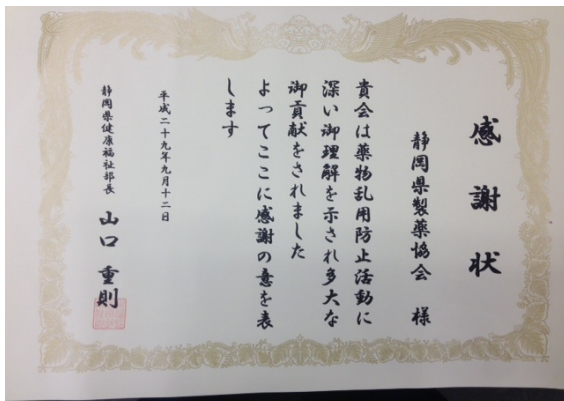 感謝状
静岡県製薬協会 様
貴会は薬物乱用防止活動に
深い御理解を示され多大な
御貢献をされました
よってここに感謝の意を表
します
平成二十九年九月十二日
静岡県健康福祉部長 山口 重則